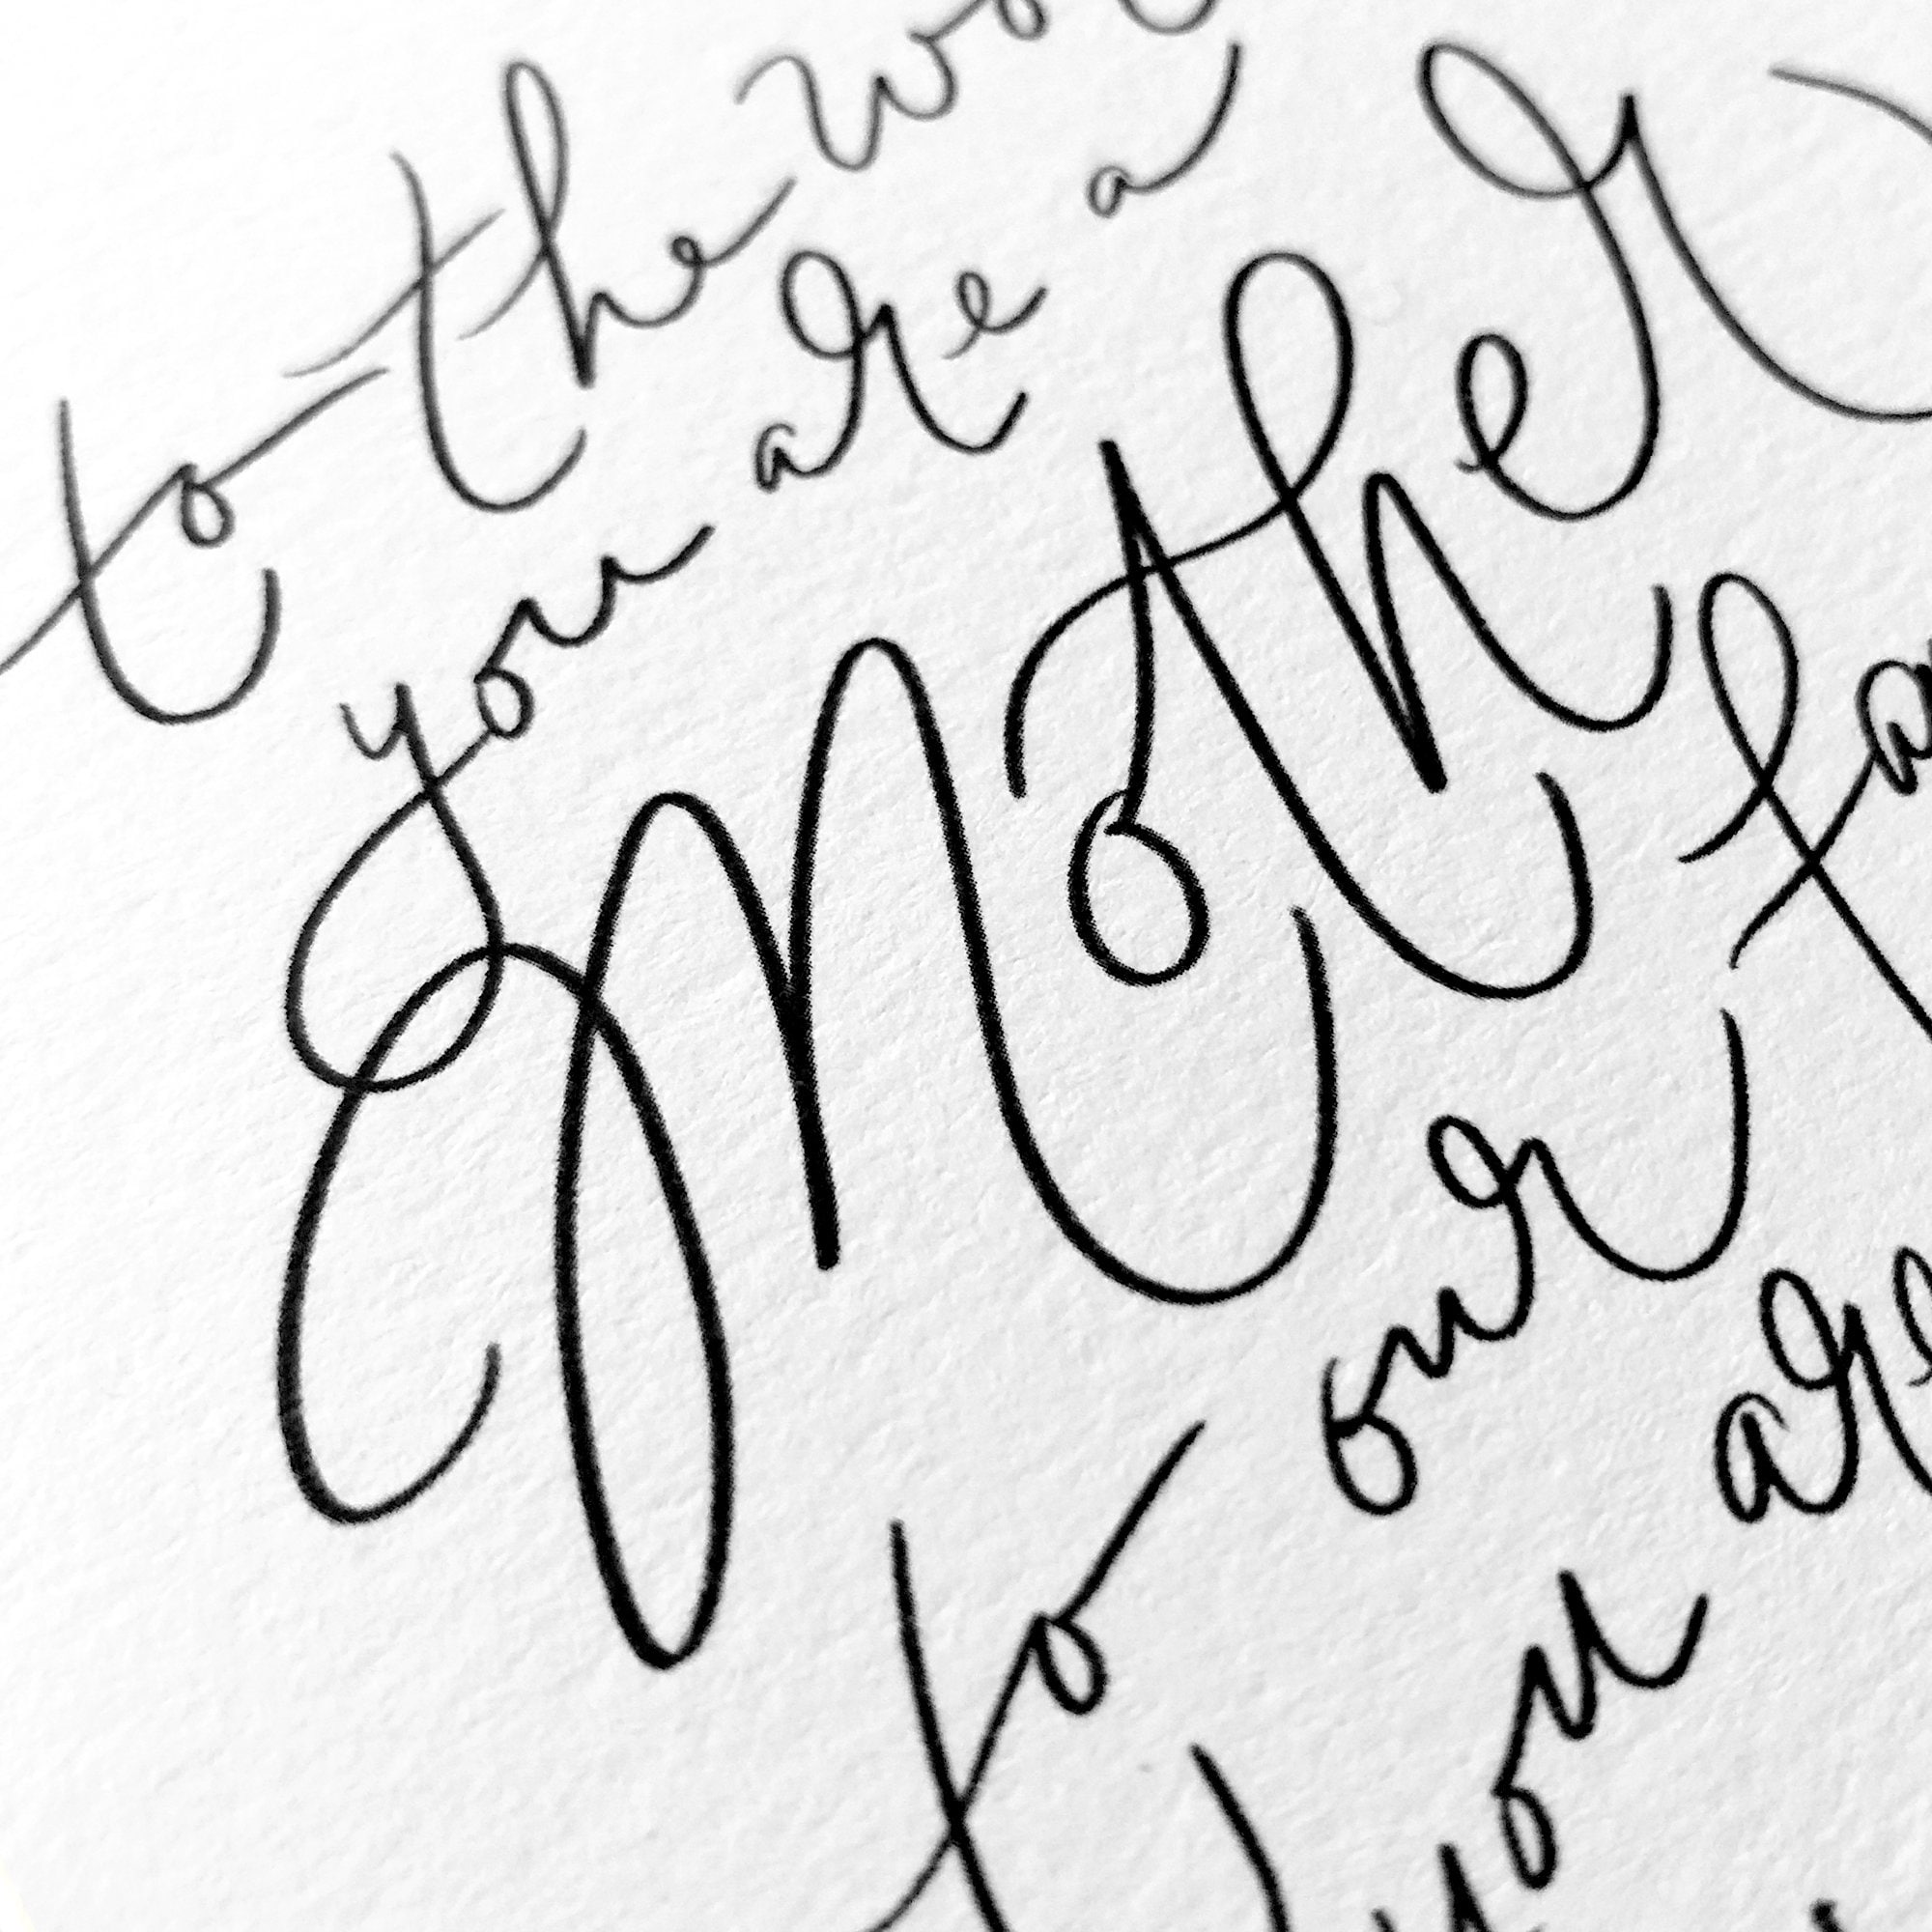 to the wo
you are a
Mother
to our fa
you are